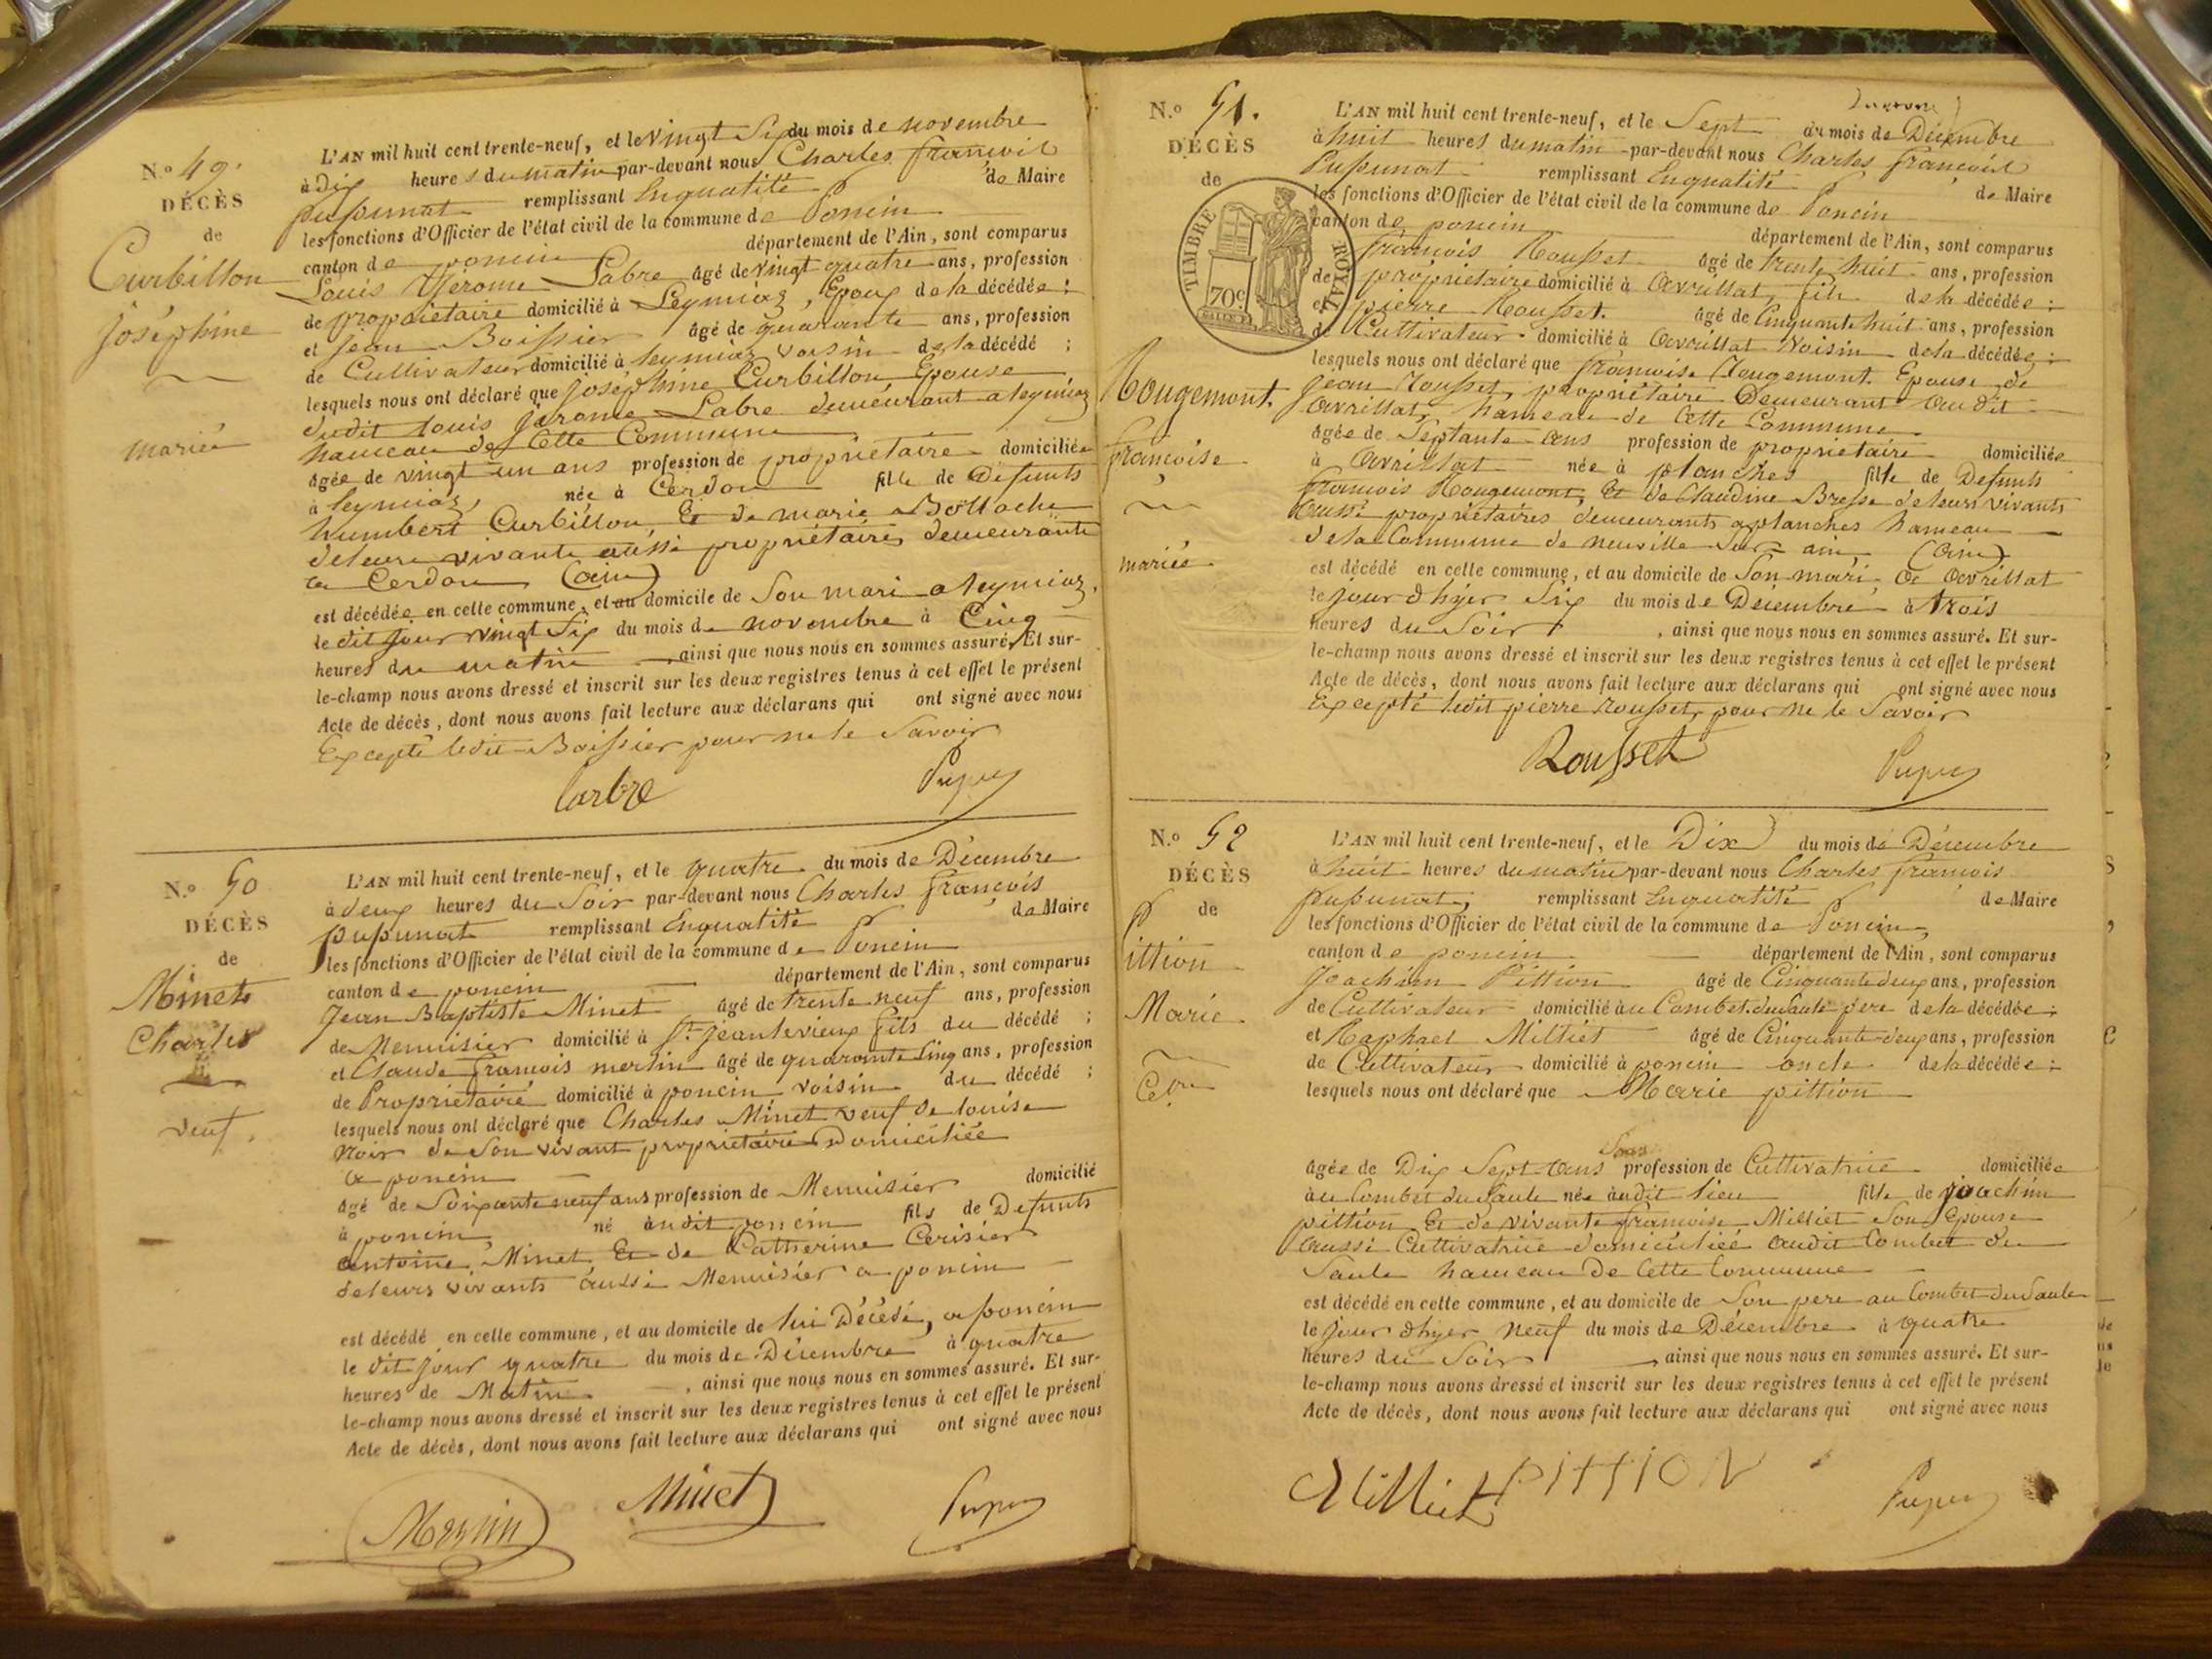 N.o 49.
DÉCÈS
de
Curbillon
joséphine
mariée
L'AN mil huit cent trente-neuf, et le vingt Six du mois de novembre
à Dix heures du matin par-devant nous Charles françois
pupunat remplissant Enqualité de Maire
les fonctions d'Officier de l'état civil de la commune de Poncin
canton de poncin département de l'Ain, sont comparus
Louis Jérome Labre âgé de vingt quatre ans, profession
de propriétaire domicilié à Leymiaz, Epoux de la décédée ;
et Jean Boissier âgé de quarante ans, profession
de Cultivateur domicilié à leymiaz voisin de la décédé ;
lesquels nous ont déclaré que joséphine Curbillon Epouse
dudit louis jérome Labre demeurant a leymiaz
hameau de Cette Commune
âgée de vingt un ans profession de propriétaire domiciliée
à leymiaz, née à Cerdon fille de Défunts
humbert Curbillon, Et de marie Bollache
deleurs vivants aussi propriétaires demeurants
a Cerdon (ain)
est décédée en cette commune, et au domicile de Son mari a leymiaz,
le dit jour vingt Six du mois de novembre à Cinq
heures du matin ainsi que nous nous en sommes assuré. Et sur-
le-champ nous avons dressé et inscrit sur les deux registres tenus à cet effet le présent
Acte de décès, dont nous avons fait lecture aux déclarans qui ont signé avec nous
Excepté ledit Boissier pour ne le Savoir
Larbre Pupu
N.o 50
DÉCÈS
de
Minet
Charles
veuf.
L'AN mil huit cent trente-neuf, et le quatre du mois de Décembre
à deux heures du Soir par-devant nous Charles françois
pupunat remplissant Enqualité de Maire
les fonctions d'Officier de l'état civil de la commune de Poncin
canton de poncin département de l'Ain, sont comparus
Jean Baptiste Minet âgé de trente neuf ans, profession
de Menuisier domicilié à St. jean le vieux fils du décédé ;
et Claude françois merlin âgé de quarante Cinq ans, profession
de Propriétaire domicilié à poncin voisin du décédé ;
lesquels nous ont déclaré que Charles Minet veuf de louise
noir de Son vivant propriétaire Domiciliée
a poncin
âgé de Soixante neuf ans profession de Menuisier domicilié
à poncin, né audit poncin fils de Defunts
antoine Minet Et de Catherine Cerisier
deleurs vivants aussi Menuisier a poncin
est décédé en cette commune, et au domicile de lui Décédé, a poncin
le dit jour quatre du mois de Décembre à quatre
heures de Matin , ainsi que nous nous en sommes assuré. Et sur-
le-champ nous avons dressé et inscrit sur les deux registres tenus à cet effet le présent
Acte de décès, dont nous avons fait lecture aux déclarans qui ont signé avec nous
Merlin Minet Pupu
N.o 51.
DÉCÈS
de
TIMBRE ROYAL
70c
Rougemont
françoise
mariée
L'AN mil huit cent trente-neuf, et le Sept du mois de Décembre
à huit heures du matin par-devant nous Charles françois
Pupunat remplissant Enqualité de Maire
les fonctions d'Officier de l'état civil de la commune de Poncin
canton de poncin département de l'Ain, sont comparus
françois Rousset âgé de trente huit ans, profession
de propriétaire domicilié à Avrillat, fils de la décédée ;
et pierre Rousset. âgé de Cinquante huit ans, profession
de Cultivateur domicilié à Avrillat Voisin de la décédée ;
lesquels nous ont déclaré que françoise Rougemont. Epouse de
jean Rousset, propriétaire Demeurant audit
avrillat, hameau de Cette Commune
âgée de Septante ans profession de propriétaire domiciliée
à Avrillat née à planches fille de Defunts
françois Rougemont, Et de Claudine Bresse deleurs vivants
aussi propriétaires demeurants aplanches hameau
dela Commune de neuville Sur ain, (Ain)
est décédé en cette commune, et au domicile de Son mari a avrillat
le jour d'hyer Six du mois de Décembre à trois
heures du Soir , ainsi que nous nous en sommes assuré. Et sur-
le-champ nous avons dressé et inscrit sur les deux registres tenus à cet effet le présent
Acte de décès, dont nous avons fait lecture aux déclarans qui ont signé avec nous
Excepté ledit pierre rousset, pour ne le Savoir
Rousset Pupu
N.o 52
DÉCÈS
de
Pittion
Marie
L'AN mil huit cent trente-neuf, et le Dix du mois de Décembre
à huit heures du matin par-devant nous Charles françois
pupunat, remplissant Enqualité de Maire
les fonctions d'Officier de l'état civil de la commune de Poncin,
canton de poncin département de l'Ain, sont comparus
Joachim Pittion âgé de Cinquante deux ans, profession
de Cultivateur domicilié au Combet du Saule père de la décédée ;
et Raphael Milliet âgé de Cinquante-deux ans, profession
de Cultivateur domicilié à poncin oncle de la décédée ;
lesquels nous ont déclaré que Marie pittion
âgée de Dix Sept ans Sans profession de Cultivatrice domiciliée
au Combet du Saule née audit lieu fille de joachim
pittion Et de vivante françoise Milliet Son Epouse
aussi Cultivatrice domiciliée audit Combet du
Saule hameau de Cette Commune
est décédé en cette commune, et au domicile de Son pere au Combet du Saule
le jour d'hyer neuf du mois de Décembre à quatre
heures du Soir , ainsi que nous nous en sommes assuré. Et sur-
le-champ nous avons dressé et inscrit sur les deux registres tenus à cet effet le présent
Acte de décès, dont nous avons fait lecture aux déclarans qui ont signé avec nous
Milliet PITTION Pupu